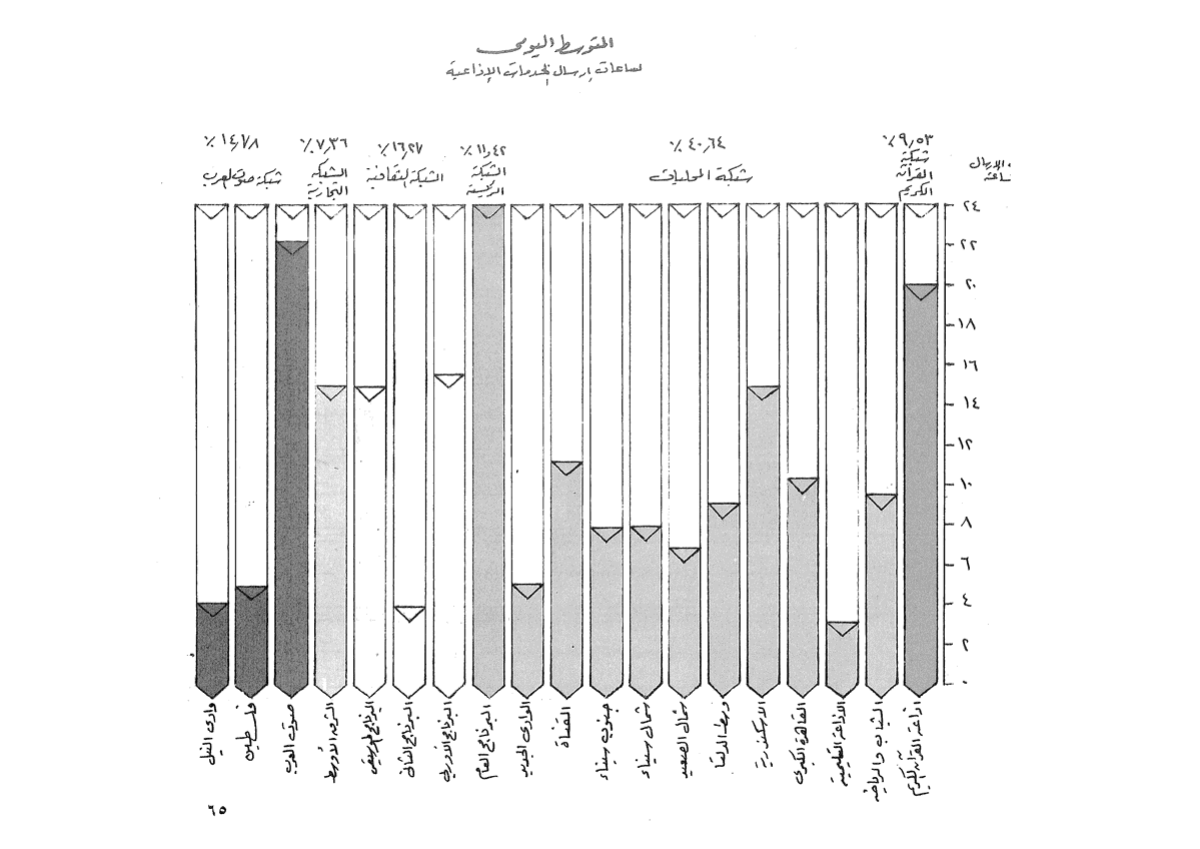 المتوسط اليومى
لساعات إرسال الخدمات الإذاعية
٩٫٥٣ ٪
شبكة
القرآن
الكريم
٤٠٫٦٤ ٪
شبكة المحليات
١١٫٤٢ ٪
الشبكة
الرئيسية
١٦٫٢٧ ٪
الشبكة الثقافية
٧٫٣٦ ٪
الشبكة
التجارية
١٤٫٧٨ ٪
شبكة صوت العرب
الإرسال
ساعة
٢٤
٢٢
٢٠
١٨
١٦
١٤
١٢
١٠
٨
٦
٤
٢
٠
إذاعة القرآن الكريم
الشباب والرياضة
الإذاعة التعليمية
القاهرة الكبرى
الاسكندرية
وسط الدلتا
شمال الصعيد
شمال سيناء
جنوب سيناء
القناة
الوادى الجديد
البرنامج العام
البرنامج الأوربى
البرنامج الثانى
البرنامج الموسيقى
الشرق الأوسط
صوت العرب
فلسطين
وادى النيل
٦٥